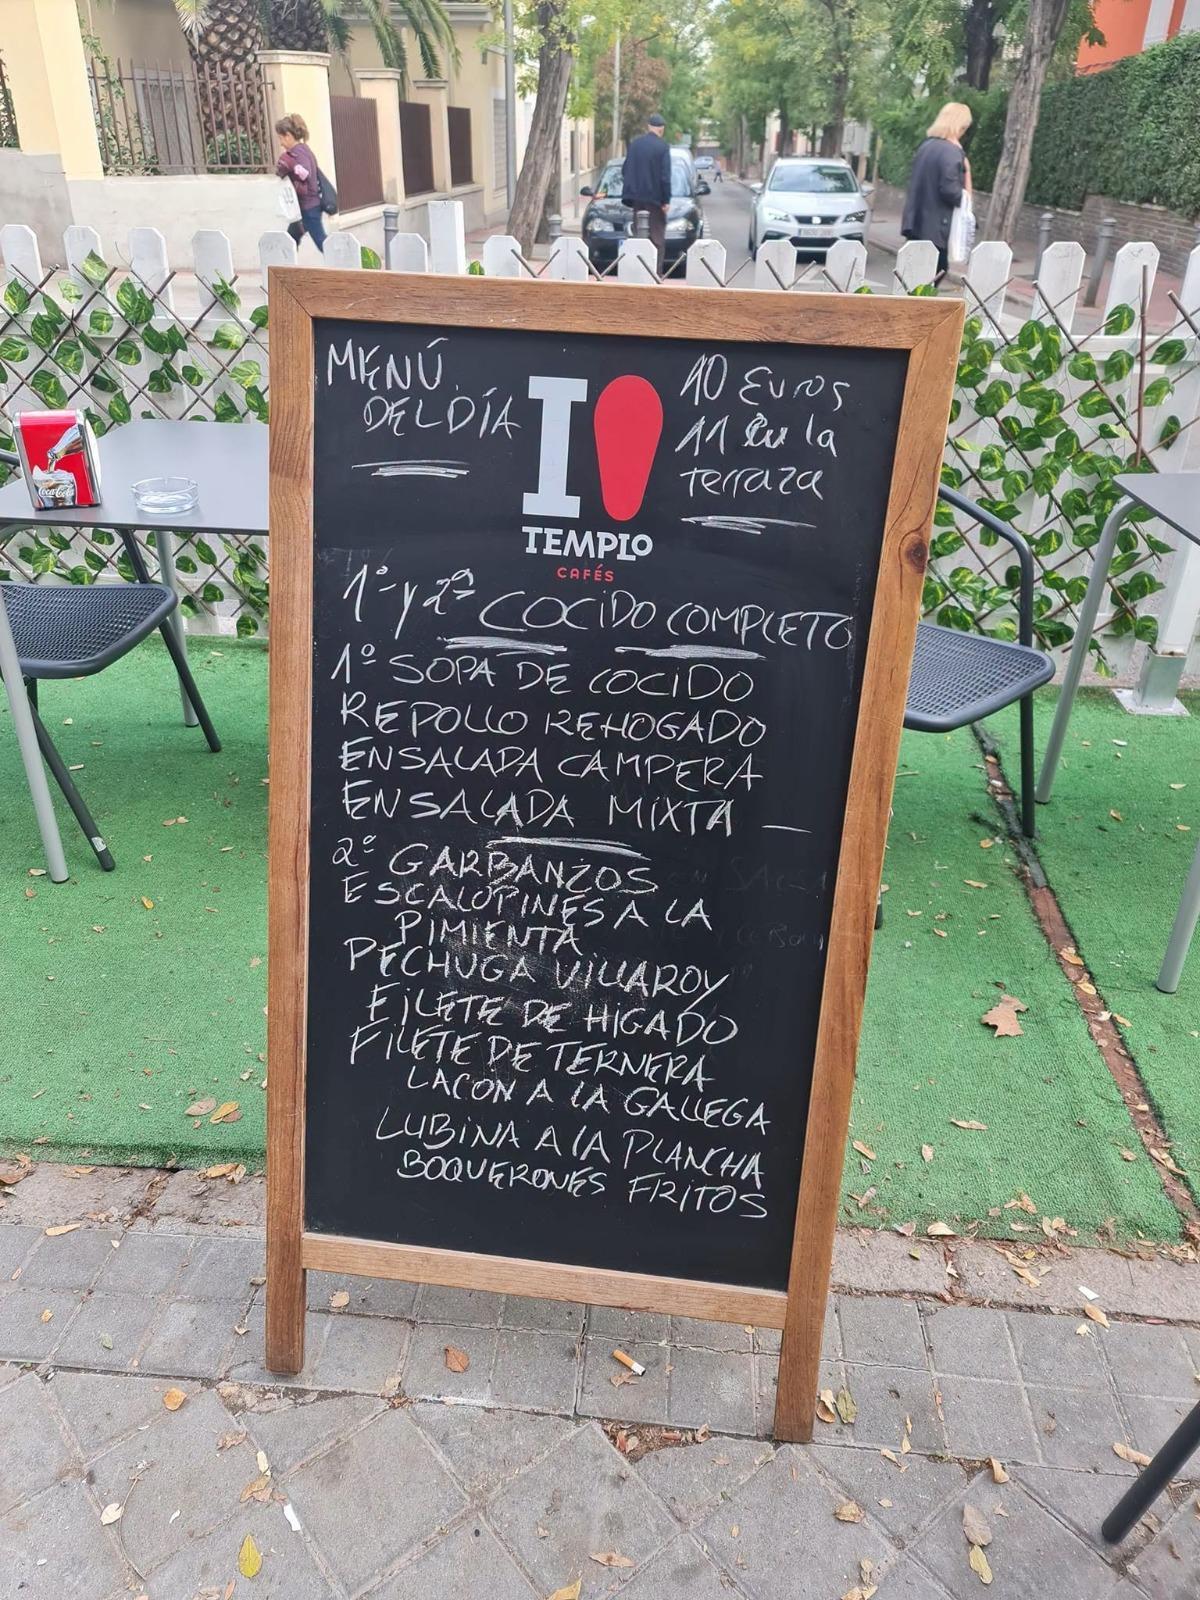 MENÚ
DEL DÍA
I
TEMPLO
CAFÉS
10 Euros
11 en la
terraza
1º y 2º COCIDO COMPLETO
1º SOPA DE COCIDO
REPOLLO REHOGADO
ENSALADA CAMPERA
ENSALADA MIXTA
2º GARBANZOS
ESCALOPINES A LA
PIMIENTA
PECHUGA VILLAROY
FILETE DE HIGADO
FILETE DE TERNERA
LACON A LA GALLEGA
LUBINA A LA PLANCHA
BOQUERONES FRITOS
Coca-Cola